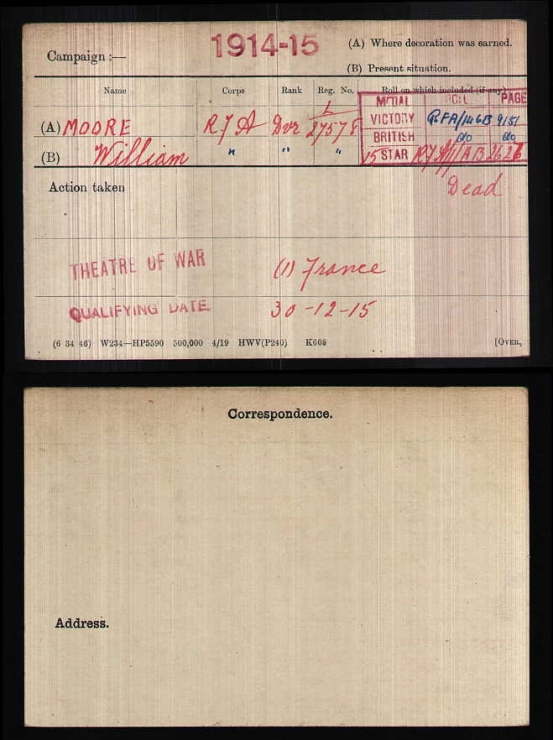 1914-15
Campaign :—
(A) Where decoration was earned.
(B) Present situation.
Name Corps Rank Reg. No. Roll on which included (if any)
MEDAL ROLL PAGE
(A) MOORE R F A Dvr L/27578 VICTORY RFA/146B 9151
(B) William " " " BRITISH do do
15 STAR RFA/ 262B
Action taken Dead
THEATRE OF WAR (1) France
QUALIFYING DATE 30-12-15
(6 34 46) W234—HP5590 500,000 4/19 HWV(P240) K608 [OVER.
Correspondence.
Address.